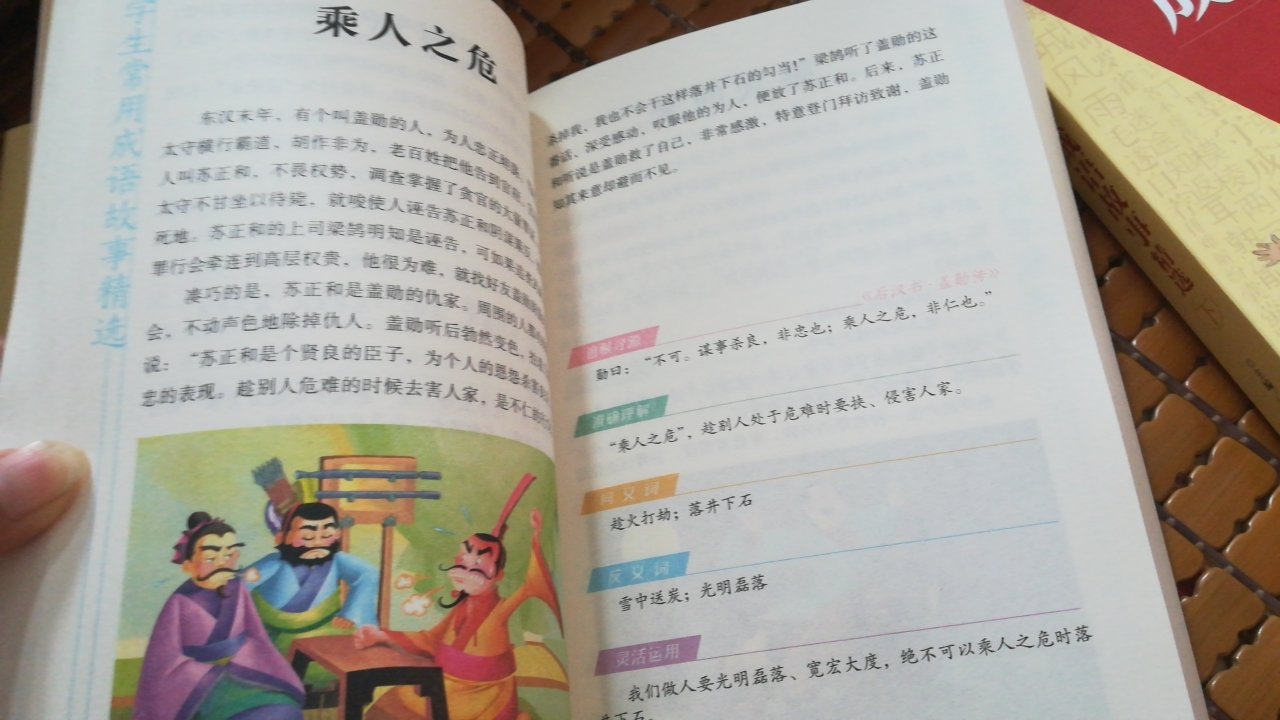 学生常用成语故事精选
乘人之危
东汉末年，有个叫盖勋的人，为人忠正
太守横行霸道、胡作非为，老百姓把他告到官
人叫苏正和，不畏权势，调查掌握了贪官的大量
太守不甘坐以待毙，就唆使人诬告苏正和阴谋
死地。苏正和的上司梁鹄明知是诬告，可如果
罪行会牵连到高层权贵，他很为难，就找好友盖勋
凑巧的是，苏正和是盖勋的仇家。周围的人
会，不动声色地除掉仇人。盖勋听后勃然变色，
说：“苏正和是个贤良的臣子，为个人的恩怨杀害
忠的表现。趁别人危难的时候去害人家，是不仁的
杀掉我，我也不会干这样落井下石的勾当！”梁鹄听了盖勋的这
番话，深受感动，叹服他的为人，便放了苏正和。后来，苏正
和听说是盖勋救了自己，非常感激，特意登门拜访致谢，盖勋
知其来意却避而不见。
《后汉书·盖勋传》
追根寻源
勋曰：“不可。谋事杀良，非忠也；乘人之危，非仁也。”
准确理解
“乘人之危”，趁别人处于危难时要挟、侵害人家。
同义词
趁火打劫；落井下石
反义词
雪中送炭；光明磊落
灵活运用
我们做人要光明磊落、宽宏大度，绝不可以乘人之危时落
井下石。